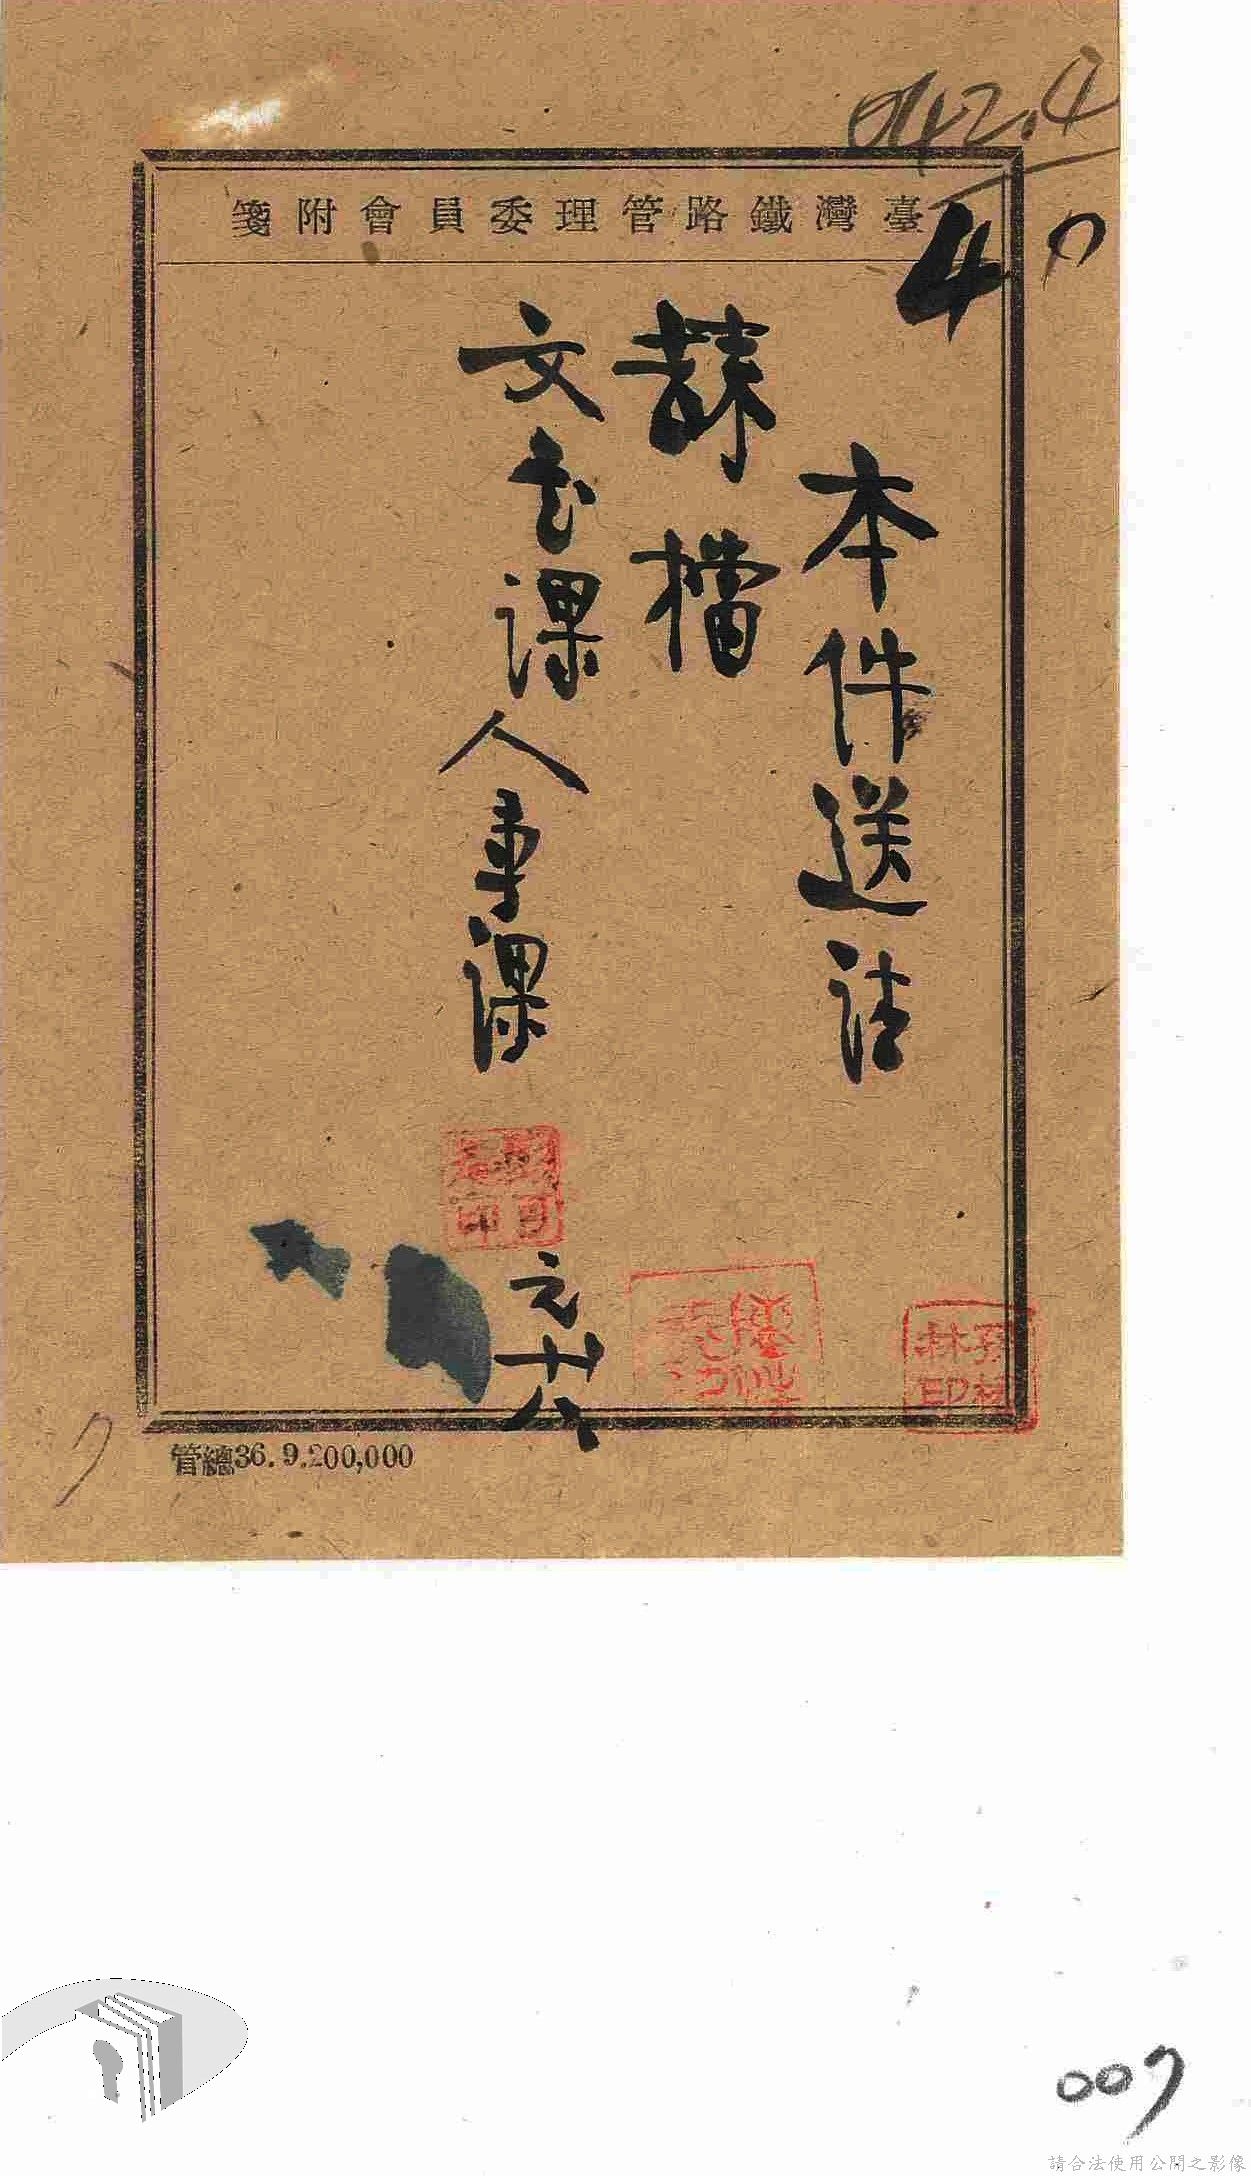 042.4
4
臺灣鐵路管理委員會附箋
本件送請
歸檔
文书課人事課
元廿八
管總36.9.200,000
007
請合法使用公開之影像